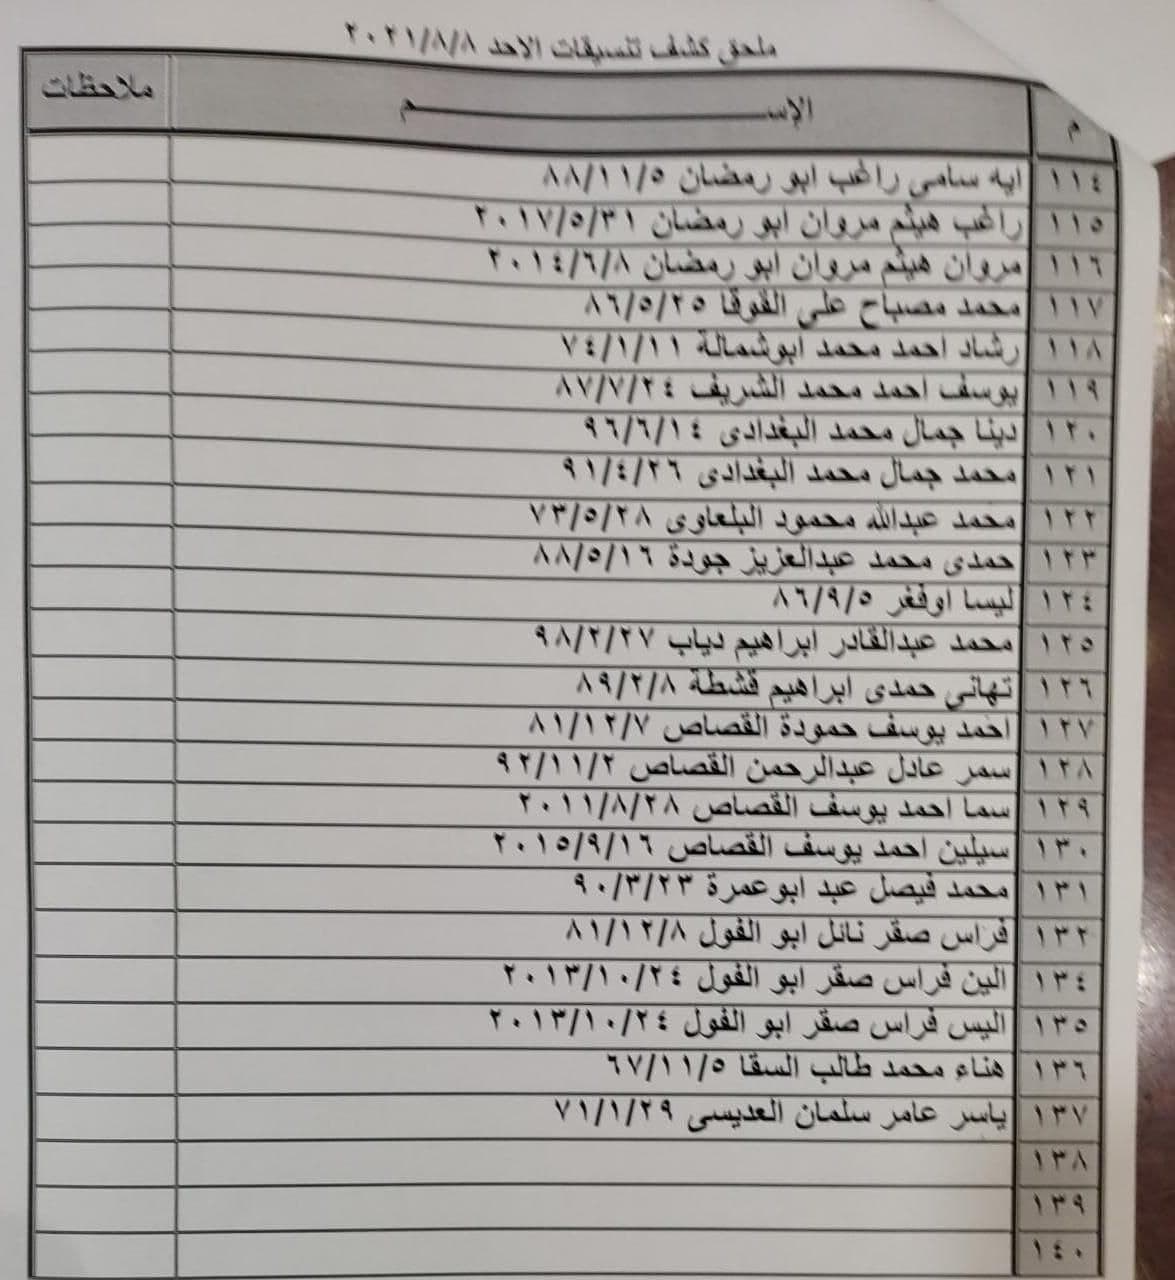 ملحق كشف تنسيقات الاحد ٢٠٢١/٨/٨
م الإســــــــم ملاحظات
١١٤ ايه سامى راغب ابو رمضان ٨٨/١١/٥
١١٥ راغب هيثم مروان ابو رمضان ٢٠١٧/٥/٣١
١١٦ مروان هيثم مروان ابو رمضان ٢٠١٤/٦/٨
١١٧ محمد مصباح على القوقا ٨٦/٥/٢٥
١١٨ رشاد احمد محمد ابوشمالة ٧٤/١/١١
١١٩ يوسف احمد محمد الشريف ٨٧/٧/٢٤
١٢٠ دينا جمال محمد البغدادى ٩٦/٦/١٤
١٢١ محمد جمال محمد البغدادى ٩١/٤/٢٦
١٢٢ محمد عبدالله محمود البلعاوى ٧٣/٥/٢٨
١٢٣ حمدى محمد عبدالعزيز جودة ٨٨/٥/١٦
١٢٤ ليسا اوفغر ٨٦/٩/٥
١٢٥ محمد عبدالقادر ابراهيم دياب ٩٨/٢/٢٧
١٢٦ تهانى حمدى ابراهيم قشطة ٨٩/٢/٨
١٢٧ احمد يوسف حمودة القصاص ٨١/١٢/٧
١٢٨ سمر عادل عبدالرحمن القصاص ٩٢/١١/٢
١٢٩ سما احمد يوسف القصاص ٢٠١١/٨/٢٨
١٣٠ سيلين احمد يوسف القصاص ٢٠١٥/٩/١٦
١٣١ محمد فيصل عبد ابوعمرة ٩٠/٣/٢٣
١٣٢ فراس صقر نائل ابو الفول ٨١/١٢/٨
١٣٤ الين فراس صقر ابو الفول ٢٠١٣/١٠/٢٤
١٣٥ اليس فراس صقر ابو الفول ٢٠١٣/١٠/٢٤
١٣٦ هناء محمد طالب السقا ٦٧/١١/٥
١٣٧ ياسر عامر سلمان العديسى ٧١/١/٢٩
١٣٨
١٣٩
١٤٠